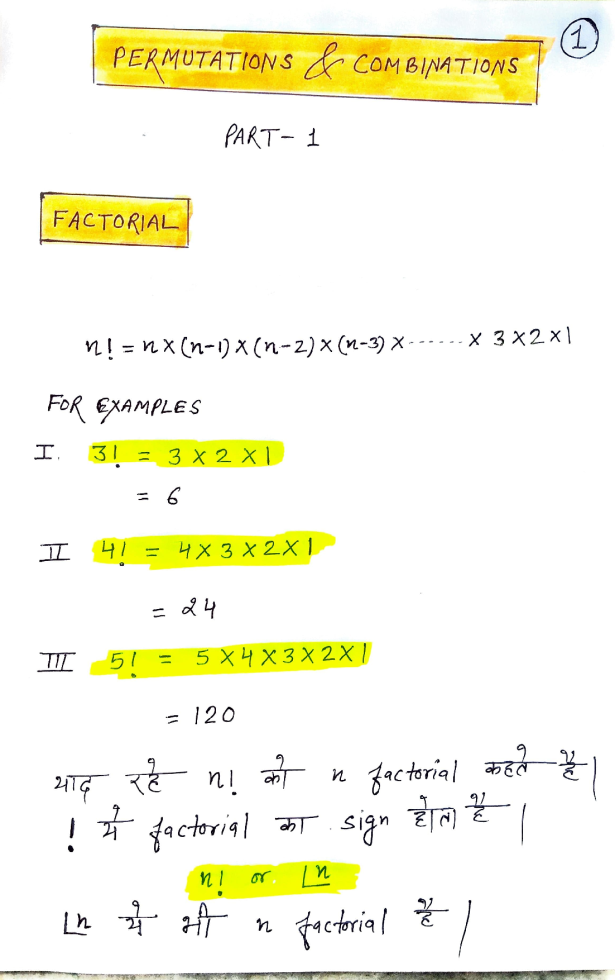 1
PERMUTATIONS & COMBINATIONS
PART- 1
FACTORIAL
n! = n×(n-1)×(n-2)×(n-3)×-------× 3×2×1
FOR EXAMPLES
I. 3! = 3×2×1
= 6
II 4! = 4×3×2×1
= 24
III 5! = 5×4×3×2×1
= 120
याद रहे n! को n factorial कहते है।
! ये factorial का sign होता है।
n! or ⌊n
⌊n ये भी n factorial है।